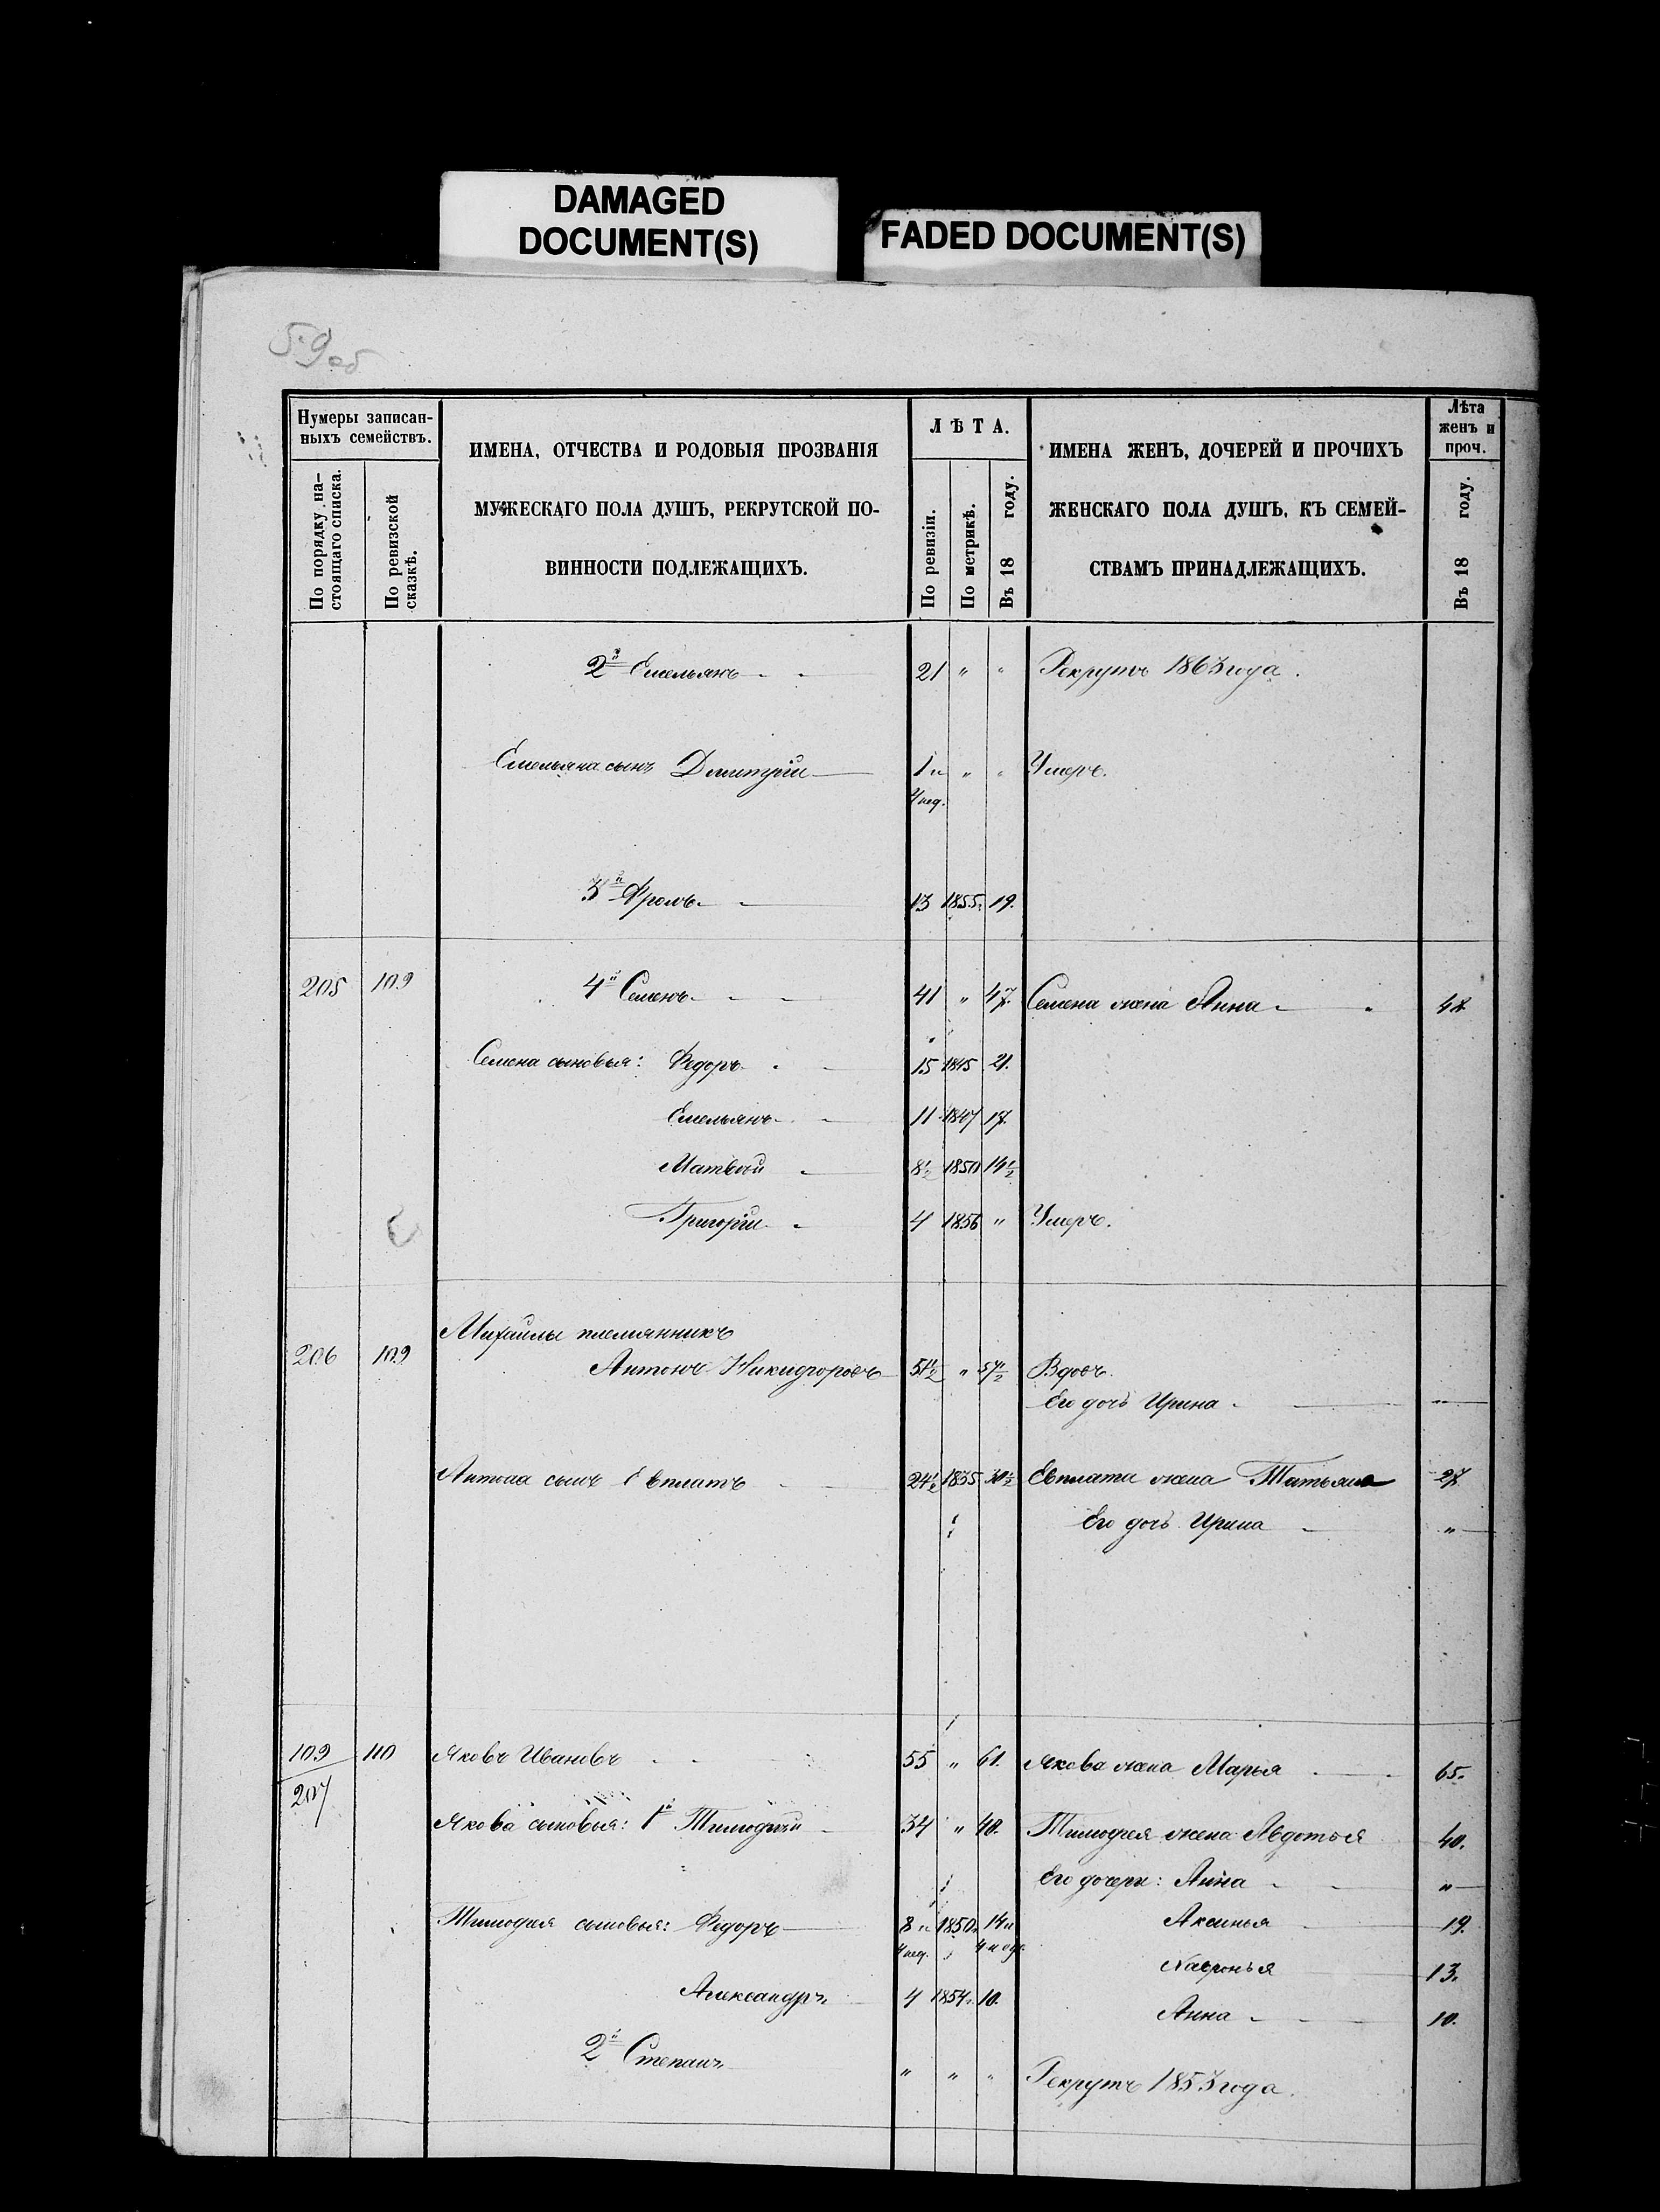 DAMAGED
DOCUMENT(S)
FADED DOCUMENT(S)
59об
Нумеры записан-
ныхъ семействъ.
По порядку на-
стоящаго списка.
По ревизской
сказкѣ.
ИМЕНА, ОТЧЕСТВА И РОДОВЫЯ ПРОЗВАНІЯ
МУЖЕСКАГО ПОЛА ДУШЪ, РЕКРУТСКОЙ ПО-
ВИННОСТИ ПОДЛЕЖАЩИХЪ.
ЛѢТА.
По ревизіи.
По метрикѣ.
Въ 18 году.
ИМЕНА ЖЕНЪ, ДОЧЕРЕЙ И ПРОЧИХЪ
ЖЕНСКАГО ПОЛА ДУШЪ, КЪ СЕМЕЙ-
СТВАМЪ ПРИНАДЛЕЖАЩИХЪ.
Лѣта
женъ и
проч.
Въ 18 году.
2й Емельянъ 21 " " Рекрутъ 1863 года.
Емельяна сынъ Димитрій 1 и " " Умеръ.
4 нед.
3й Фролъ 13 1855. 19.
205 109 4й Семенъ 41 " 47. Семена жена Анна 48
Семена сыновья: Федоръ 15 1845 21.
Емельянъ 11 1847 17.
Матвей 8½ 1850 14½
Григорій 4 1856 " Умеръ.
Михаилы племянникъ
206 109 Антонъ Никифоровъ 51½ " 57½ Вдовъ.
Его дочь Ирина "
Антона сынъ Евплатъ 24½ 1835 30½ Евплата жена Татьяна 27
Его дочь Ирина "
109 110 Яковъ Ивановъ 55 " 61. Якова жена Марья 65.
207
Якова сыновья: 1й Тимофей 34 " 40. Тимофея жена Авдотья 40.
Его дочери: Анна "
Тимофея сыновья: Федоръ 8 и 1850. 14 и Аксинья 19.
4 нед. 4 нед.
Хавронья 13.
Александръ 4 1854. 10.
Анна 10.
2й Степанъ " " " Рекрутъ 1853 года.